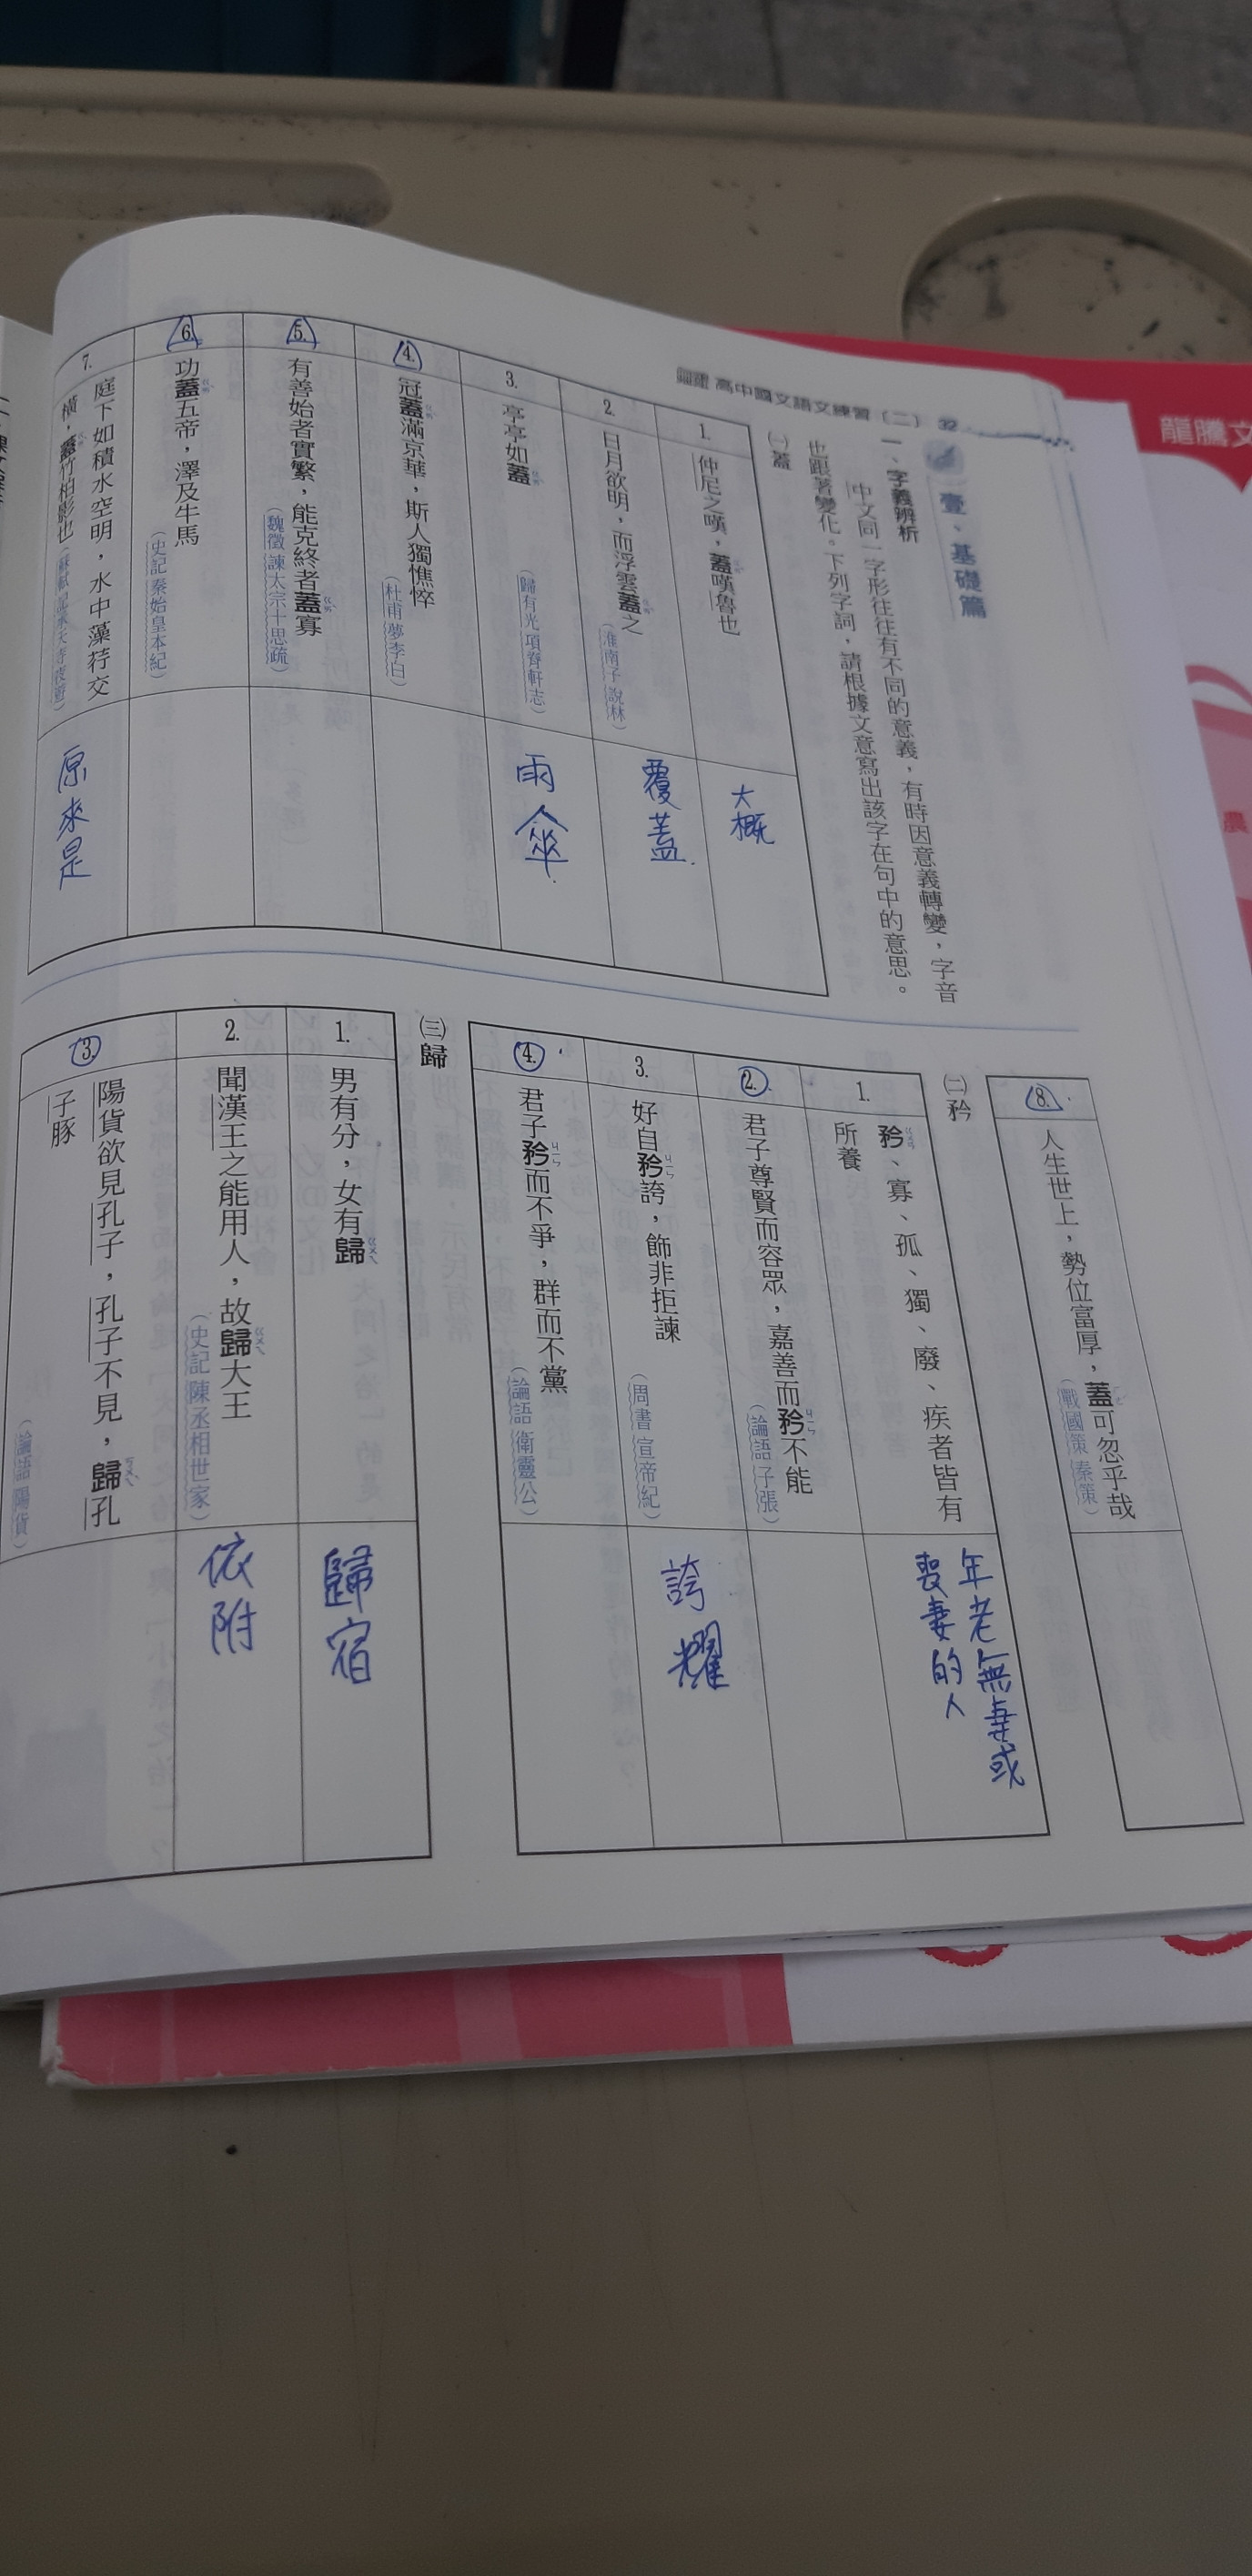 高中國文語文練習（二） 32
壹、基礎篇
一、字義辨析
中文同一字形往往有不同的意義，有時因意義轉變，字音
也跟著變化。下列字詞，請根據文意寫出該字在句中的意思。
㈠蓋
1.
仲尼之嘆，蓋嘆魯也
大概
2.
日月欲明，而浮雲蓋之
（淮南子 說林）
覆蓋
3.
亭亭如蓋
（歸有光 項脊軒志）
雨傘
4.
冠蓋滿京華，斯人獨憔悴
（杜甫 夢李白）
5.
有善始者實繁，能克終者蓋寡
（魏徵 諫太宗十思疏）
6.
功蓋五帝，澤及牛馬
（史記 秦始皇本紀）
7.
庭下如積水空明，水中藻荇交
橫，蓋竹柏影也
（蘇軾 記承天寺夜遊）
原來是
8.
人生世上，勢位富厚，蓋可忽乎哉
（戰國策 秦策）
㈡矜
1.
矜、寡、孤、獨、廢、疾者皆有
所養
年老無妻或
喪妻的人
2.
君子尊賢而容眾，嘉善而矜不能
（論語 子張）
3.
好自矜誇，飾非拒諫
（周書 宣帝紀）
誇耀
4.
君子矜而不爭，群而不黨
（論語 衛靈公）
㈢歸
1.
男有分，女有歸
歸宿
2.
聞漢王之能用人，故歸大王
（史記 陳丞相世家）
依附
3.
陽貨欲見孔子，孔子不見，歸孔
子豚
（論語 陽貨）
龍騰文